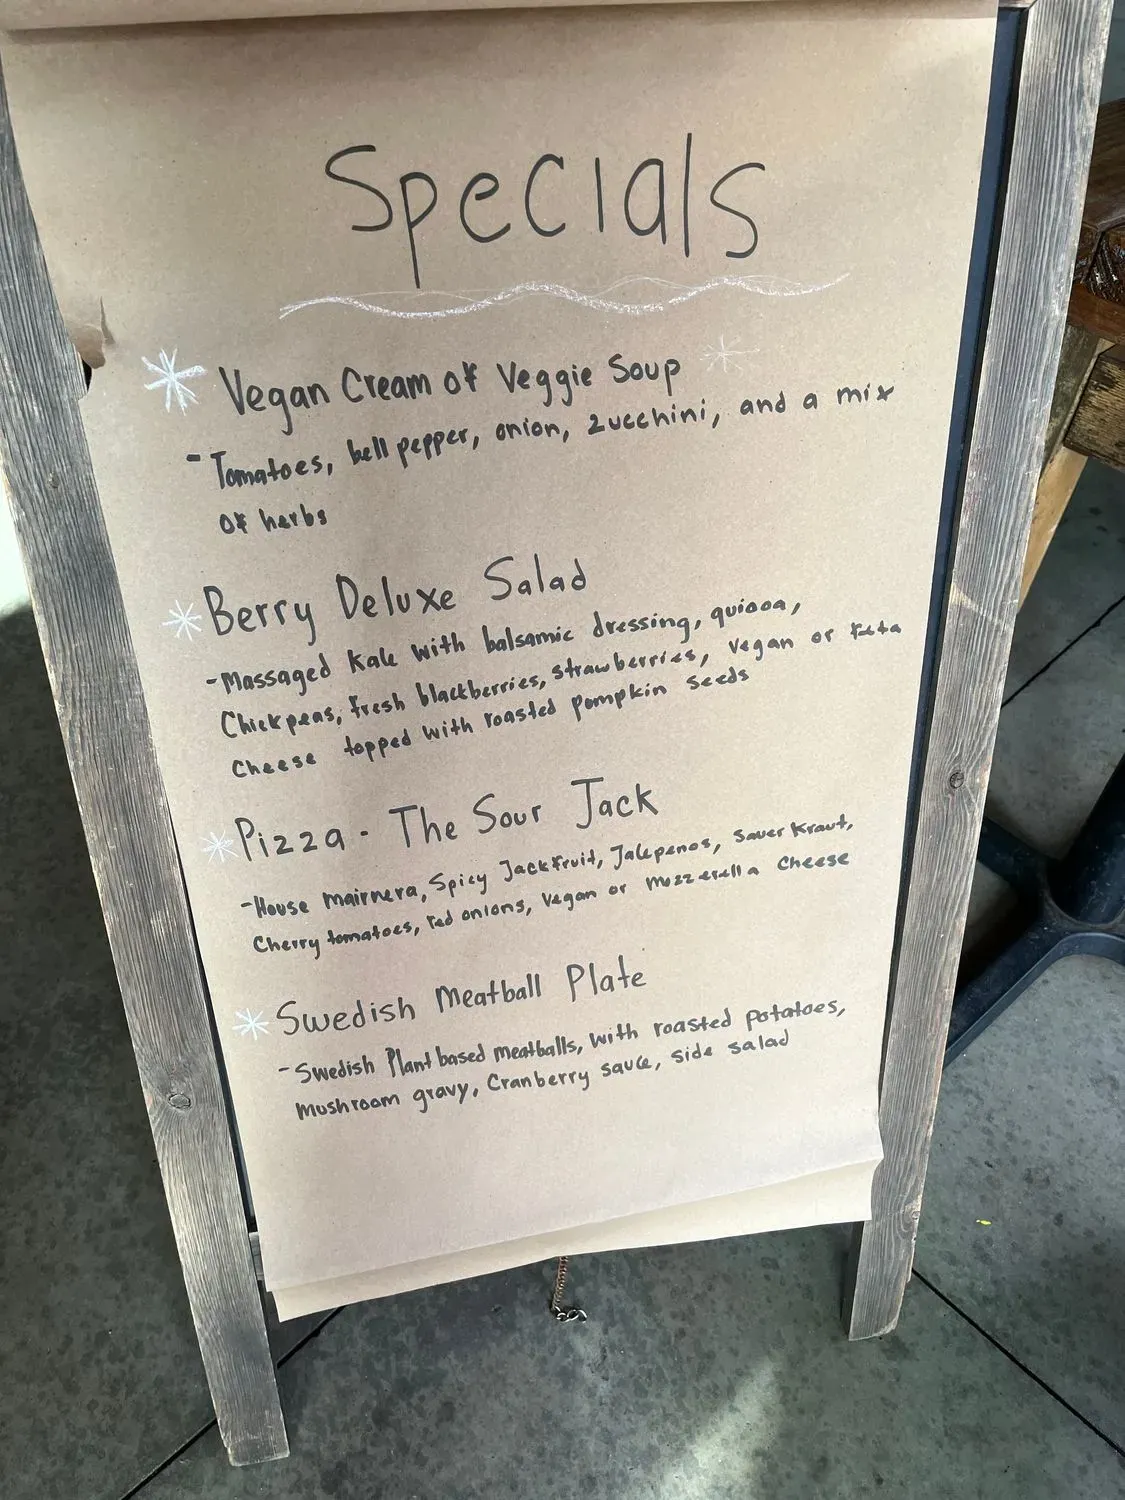 Specials
Vegan Cream of Veggie Soup
- Tomatoes, bell pepper, onion, zucchini, and a mix
of herbs
Berry Deluxe Salad
- Massaged Kale with balsamic dressing, quinoa,
Chickpeas, fresh blackberries, strawberries, vegan or feta
Cheese topped with roasted pumpkin seeds
Pizza - The Sour Jack
- House mairnera, Spicy Jackfruit, Jalepenos, Sauer Kraut,
Cherry tomatoes, red onions, vegan or mozzerella Cheese
Swedish Meatball Plate
- Swedish Plant based meatballs, with roasted potatoes,
mushroom gravy, Cranberry sauce, side salad